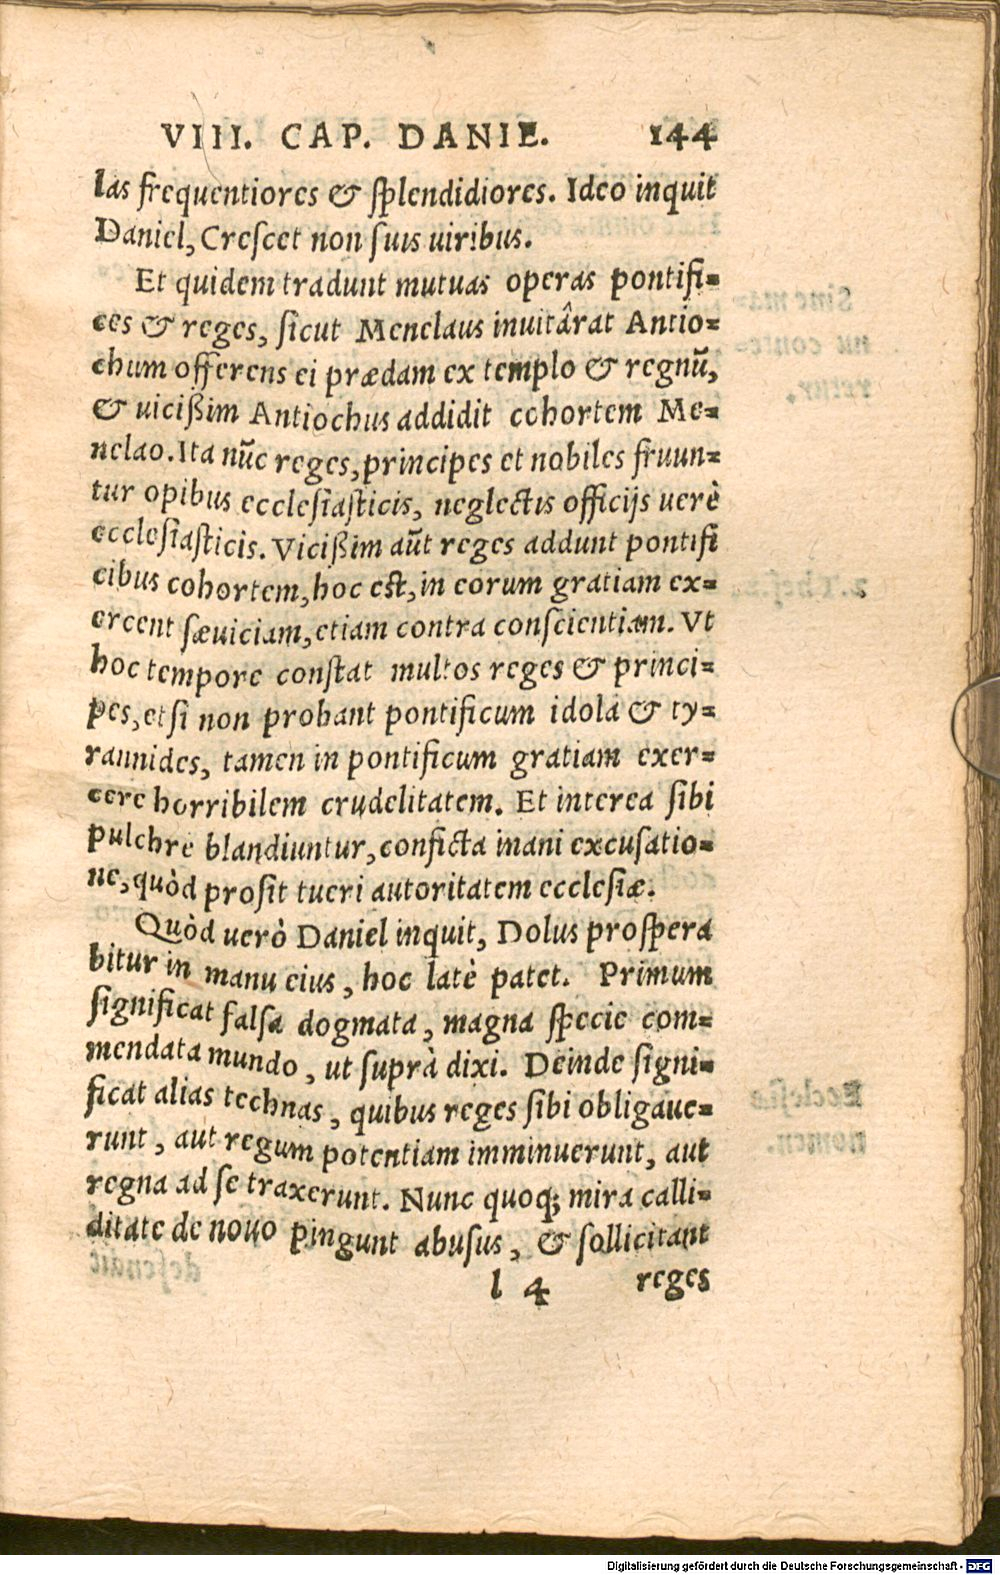 VIII. CAP. DANIE. 144
las frequentiores & ſplendidiores. Ideo inquit
Daniel, Creſcet non ſuis uiribus.
Et quidem tradunt mutuas operas pontifi=
ces & reges, ſicut Menelaus inuitârat Antio=
chum offerens ei prædam ex templo & regnũ,
& uicißim Antiochus addidit cohortem Me=
nelao. Ita nũc reges, principes et nobiles fruun=
tur opibus eccleſiaſticis, neglectis officijs uerè
eccleſiaſticis. Vicißim aũt reges addunt pontifi
cibus cohortem, hoc eſt, in eorum gratiam ex=
ercent ſæuiciam, etiam contra conſcientiam. Vt
hoc tempore conſtat multos reges & princi=
pes, etſi non probant pontificum idola & ty=
rannides, tamen in pontificum gratiam exer=
cere horribilem crudelitatem. Et interea ſibi
pulchre blandiuntur, conficta inani excuſatio=
ne, quòd proſit tueri autoritatem eccleſiæ.
Quòd uerò Daniel inquit, Dolus proſpera
bitur in manu eius, hoc latè patet. Primum
ſignificat falſa dogmata, magna ſpecie com=
mendata mundo, ut ſuprà dixi. Deinde ſigni=
ficat alias technas, quibus reges ſibi obligaue=
runt, aut regum potentiam imminuerunt, aut
regna ad ſe traxerunt. Nunc quoq; mira calli=
ditate de nouo pingunt abuſus, & ſollicitant
l 4 reges
Digitalisierung gefördert durch die Deutsche Forschungsgemeinschaft - DFG